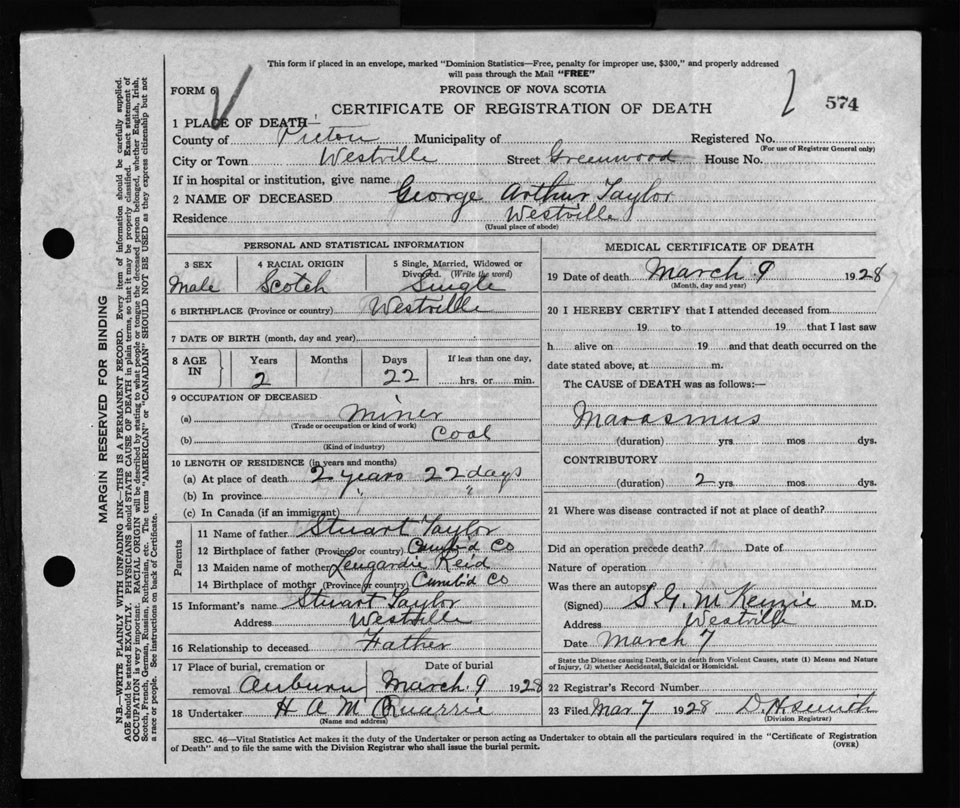 This form if placed in an envelope, marked "Dominion Statistics—Free, penalty for improper use, $300," and properly addressed
will pass through the Mail "FREE"
FORM 6
PROVINCE OF NOVA SCOTIA
CERTIFICATE OF REGISTRATION OF DEATH
574
1 PLACE OF DEATH
County of Pictou Municipality of Registered No.
(For use of Registrar General only)
City or Town Westville Street Greenwood House No.
If in hospital or institution, give name
2 NAME OF DECEASED George Arthur Taylor
Residence Westville
(Usual place of abode)
PERSONAL AND STATISTICAL INFORMATION
3 SEX 4 RACIAL ORIGIN 5 Single, Married, Widowed or
Divorced. (Write the word)
Male Scotch Single
6 BIRTHPLACE (Province or country) Westville
7 DATE OF BIRTH (month, day and year)
8 AGE IN Years Months Days If less than one day,
2 22 hrs. or min.
9 OCCUPATION OF DECEASED
(a) Miner
(Trade or occupation or kind of work)
(b) Coal
(Kind of industry)
10 LENGTH OF RESIDENCE (in years and months)
(a) At place of death 2 years 22 days
(b) In province " "
(c) In Canada (if an immigrant)
Parents
11 Name of father Stuart Taylor
12 Birthplace of father (Province or country) Cumb'd Co
13 Maiden name of mother Reid
14 Birthplace of mother (Province or country) Cumb'd Co
15 Informant's name Stuart Taylor
Address Westville
16 Relationship to deceased Father
17 Place of burial, cremation or Date of burial
removal Auburn March 9 1928
18 Undertaker H A McQuarrie
(Name and address)
MEDICAL CERTIFICATE OF DEATH
19 Date of death March 9 1928
(Month, day and year)
20 I HEREBY CERTIFY that I attended deceased from
19 to 19 that I last saw
h alive on 19 and that death occurred on the
date stated above, at m.
The CAUSE of DEATH was as follows:—
Marasmus
(duration) yrs. mos dys.
CONTRIBUTORY
(duration) 2 yrs mos dys.
21 Where was disease contracted if not at place of death?
Did an operation precede death? Date of
Nature of operation
Was there an autopsy
(Signed) S. G. McKenzie M.D.
Address Westville
Date March 7
State the Disease causing Death, or in death from Violent Causes, state (1) Means and Nature
of Injury, (2) whether Accidental, Suicidal or Homicidal.
22 Registrar's Record Number
23 Filed Mar 7 1928 D. H. Smith
(Division Registrar)
SEC. 46—Vital Statistics Act makes it the duty of the Undertaker or person acting as Undertaker to obtain all the particulars required in the "Certificate of Registration
of Death" and to file the same with the Division Registrar who shall issue the burial permit.
(OVER)
MARGIN RESERVED FOR BINDING
N.B.—WRITE PLAINLY WITH UNFADING INK—THIS IS A PERMANENT RECORD. Every item of information should be carefully supplied.
AGE should be stated EXACTLY. PHYSICIANS should STATE CAUSE OF DEATH in plain terms, so that it may be properly classified. Exact statement of
OCCUPATION is very important. RACIAL ORIGIN will be described by stating to what people or tongue the deceased person belonged, whether English, Irish,
Scotch, French, German, Russian, Ruthenian, etc. The terms "AMERICAN" or "CANADIAN" SHOULD NOT BE USED as they express citizenship but not
a race or people. See instructions on back of Certificate.